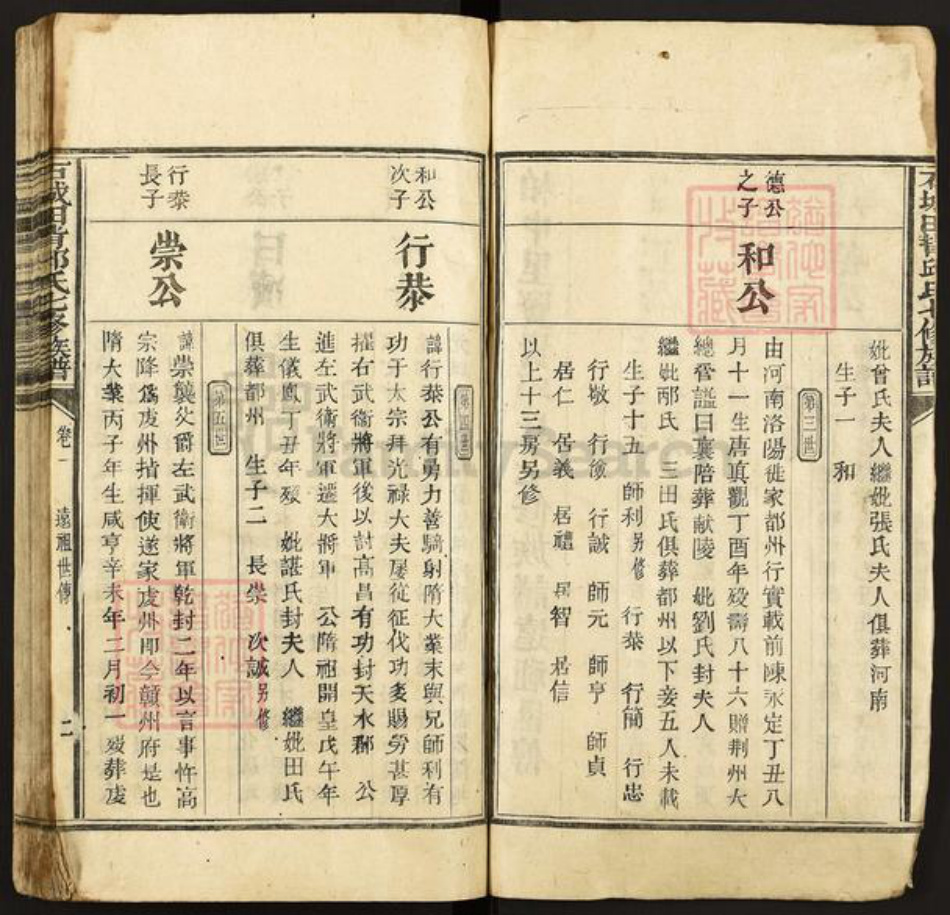 妣曾氏夫人繼妣張氏夫人俱葬河南
生子一　和
第三世
德公
之子
和公
由河南洛陽徙家都州行實載前陳永定丁丑八
月十一生唐真觀丁酉年歿壽八十六贈荆州大
總管謚曰襄陪葬献陵　妣劉氏封夫人
繼妣邴氏　三田氏俱葬都州以下妾五人未載
生子十五　師利另修　行恭　行簡　行忠
行敬　行儉　行誠　師元　師亨　師貞
居仁　居義　居禮　居智　居信
以上十三房另修
第四世
和公
次子
行恭
諱行恭公有勇力善騎射隋大業末與兄師利有
功于太宗拜光祿大夫屡從征伐功多賜劳甚厚
擢右武衛將軍後以討高昌有功封天水郡　公
進左武衛將軍遷大將軍　公隋祖開皇戊午年
生儀鳳丁丑年歿　妣諶氏封夫人　繼妣田氏
俱葬都州　生子二　長崇　次誠另修
第五世
行恭
長子
崇公
諱崇襲父爵左武衛將軍乾封二年以言事忤高
宗降爲虔州指揮使遂家虔州即今贛州府是也
隋大業丙子年生咸亨辛未年二月初一歿葬虔
石城田背邱氏七修族譜
卷一
遠祖世傳
二